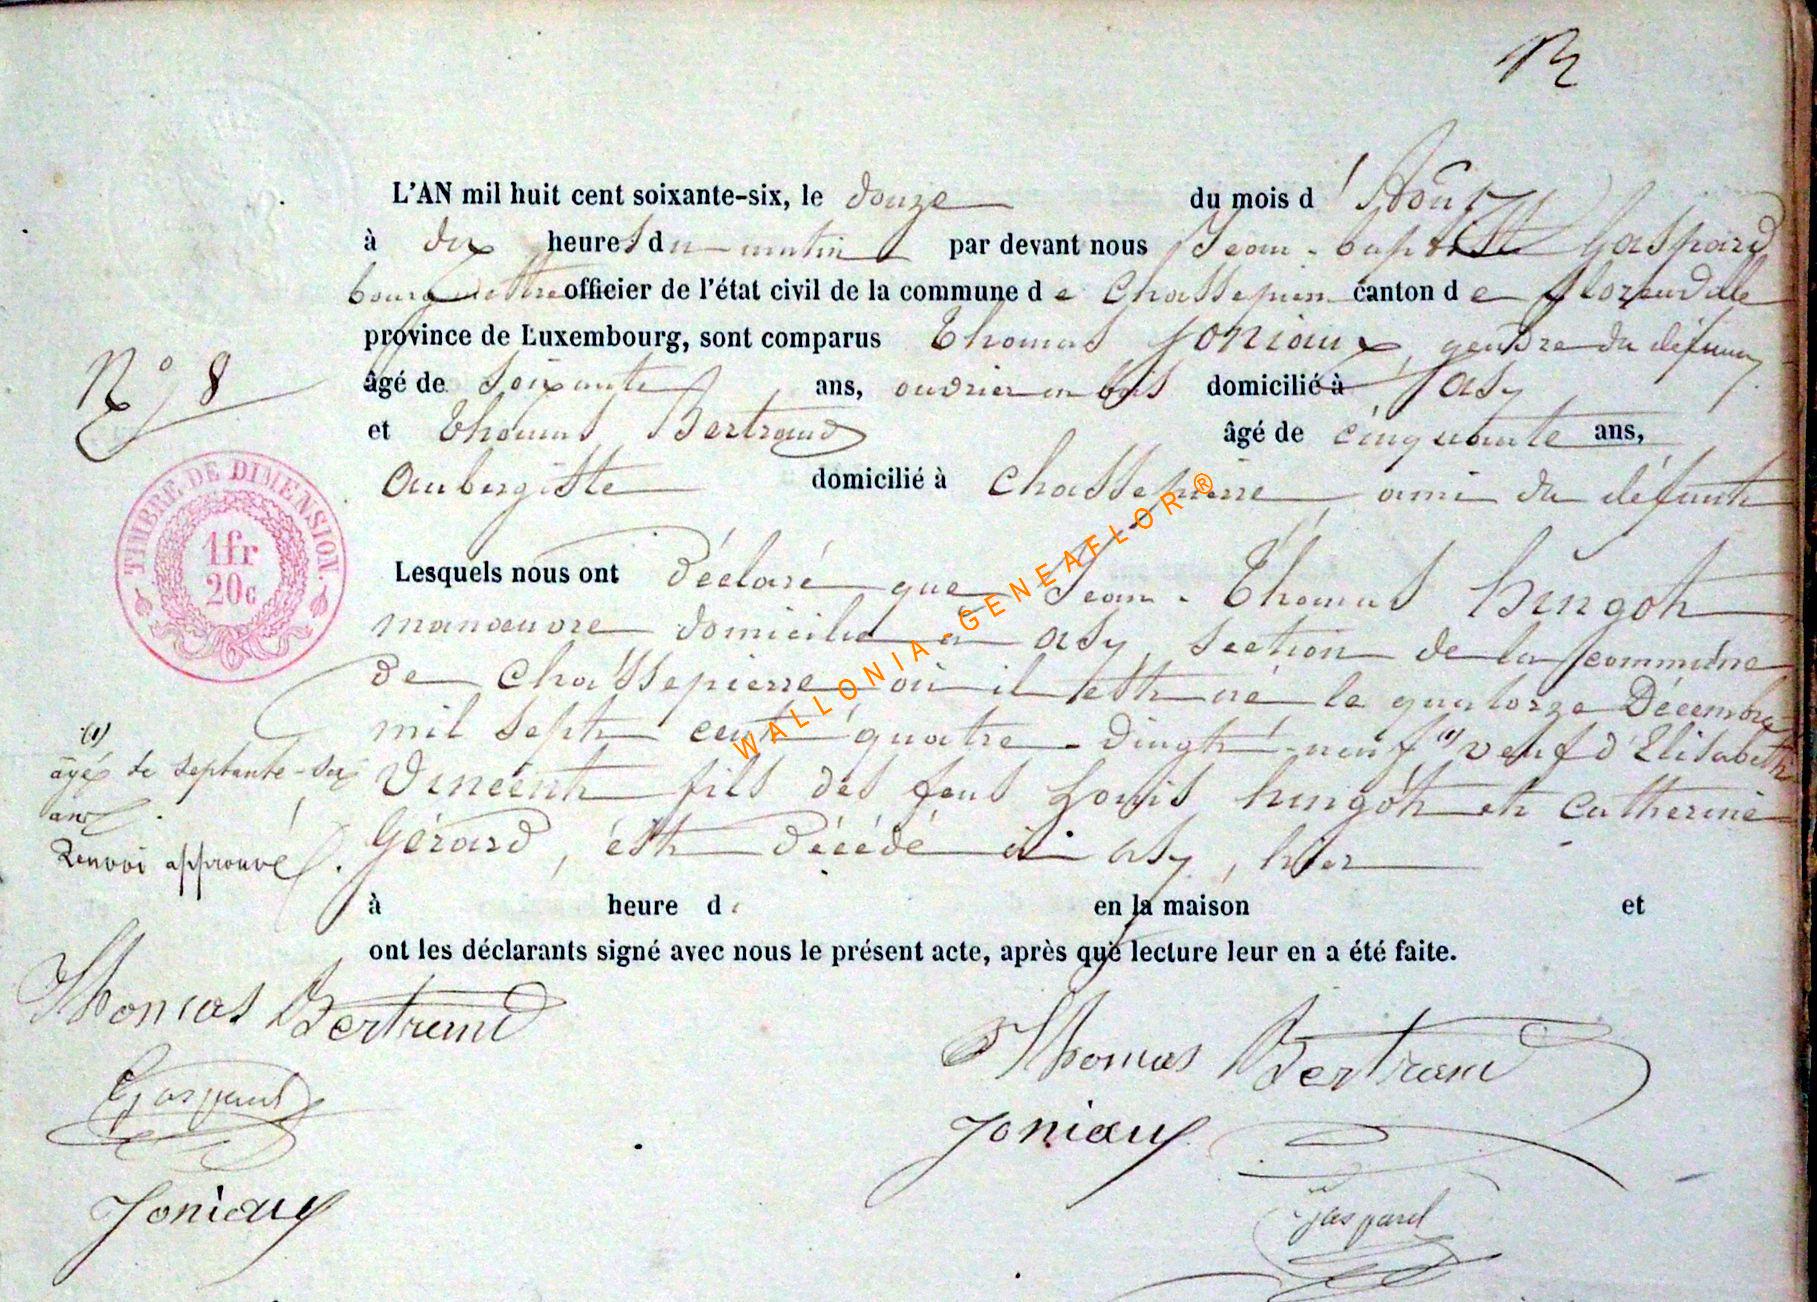 L'AN mil huit cent soixante-six, le douze du mois d'Août
à dix heures du matin par devant nous Jean-baptiste Gaspard
bourgmettre officier de l'état civil de la commune de Chassepierre canton de florenville
province de Luxembourg, sont comparus Thomas Joniaux, gendre du défunt,
âgé de soixante ans, ouvrier en bois domicilié à asy
N° 8
et Thomas Bertrand âgé de cinquante ans,
Aubergiste domicilié à Chassepierre ami du défunt
TIMBRE DE DIMENSION.
1fr
20c
Lesquels nous ont déclaré que Jean-Thomas hingot
manœuvre domicilié à asy section de la commune
de Chassepierre où il est né le quatorze Décembre
mil sept cent quatre-vingt-neuf (1) veuf d'Elisabeth
Vincent fils des feus Louis hingot et Catherine
Gérard, est décédé à asy, hier
(1)
âgé de septante-six
ans.
Renvoi approuvé.
à heure d en la maison et
ont les déclarants signé avec nous le présent acte, après que lecture leur en a été faite.
Thomas Bertrand
Gaspard
Joniaux
Thomas Bertrand
Joniaux
Gaspard
WALLONIA-GENEAFLOR®